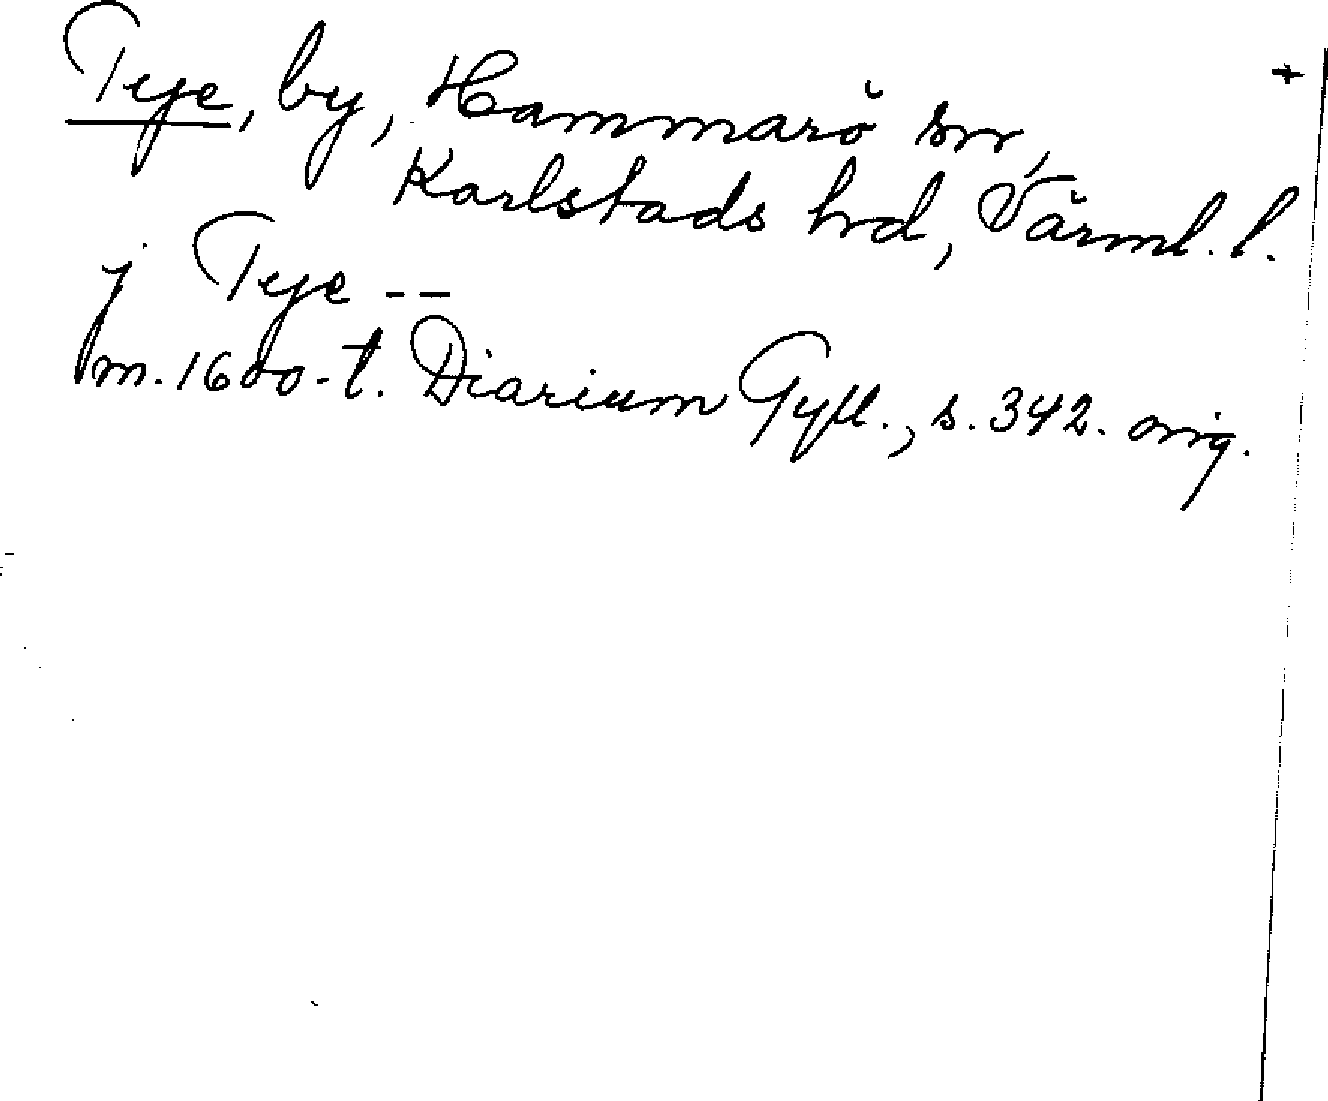 Tye, by, Hammarö sn, +
Karlstads hd, Värml. l.
j Tye --
m. 1600-t. Diarium Gyll., s. 342. orig.